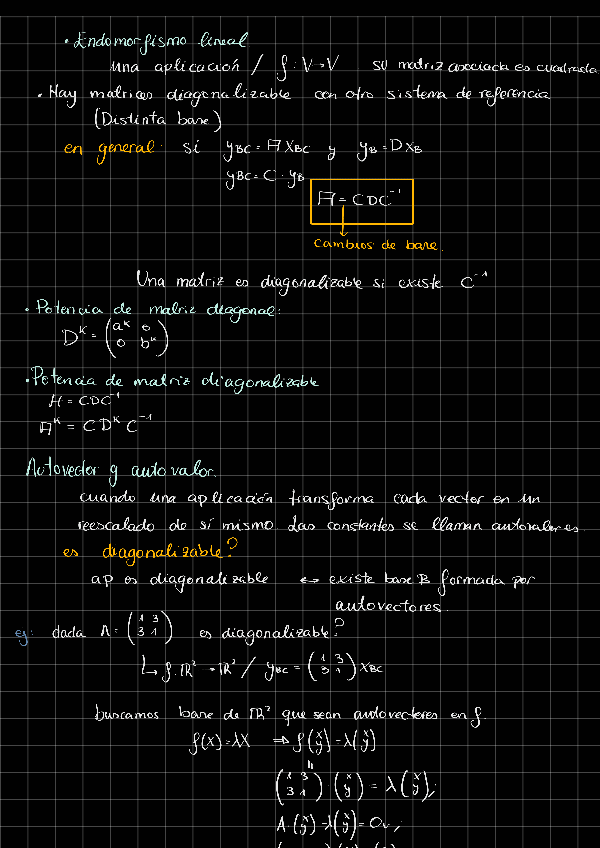 • Endomorfismo lineal
Una aplicación / f: V→V su matriz asociada es cuadrada
• Hay matrices diagonalizable con otro sistema de referencia
(Distinta base)
en general: si y_BC = A x_BC y y_B = D x_B
y_BC = C · y_B
A = CDC⁻¹
cambios de base.
Una matriz es diagonalizable si existe C⁻¹
• Potencia de matriz diagonal:
D^K = (a^K 0
0 b^K)
• Potencia de matriz diagonalizable
A = CDC⁻¹
A^K = C D^K C⁻¹
Autovector y autovalor.
cuando una aplicación transforma cada vector en un
reescalado de sí mismo. Las constantes se llaman autovalores
es diagonalizable?
ap es diagonalizable ↔ existe base B formada por
autovectores.
ej: dada A = (1 3
3 1) es diagonalizable?
↳ f: ℝ² → ℝ² / y_BC = (1 3
3 1) x_BC
buscamos base de ℝ² que sean autovectores en f
f(x) = λx ⇒ f(x y) = λ(x y)
(1 3
3 1) · (x y) = λ(x y);
A · (x y) - λ(x y) = 0v;